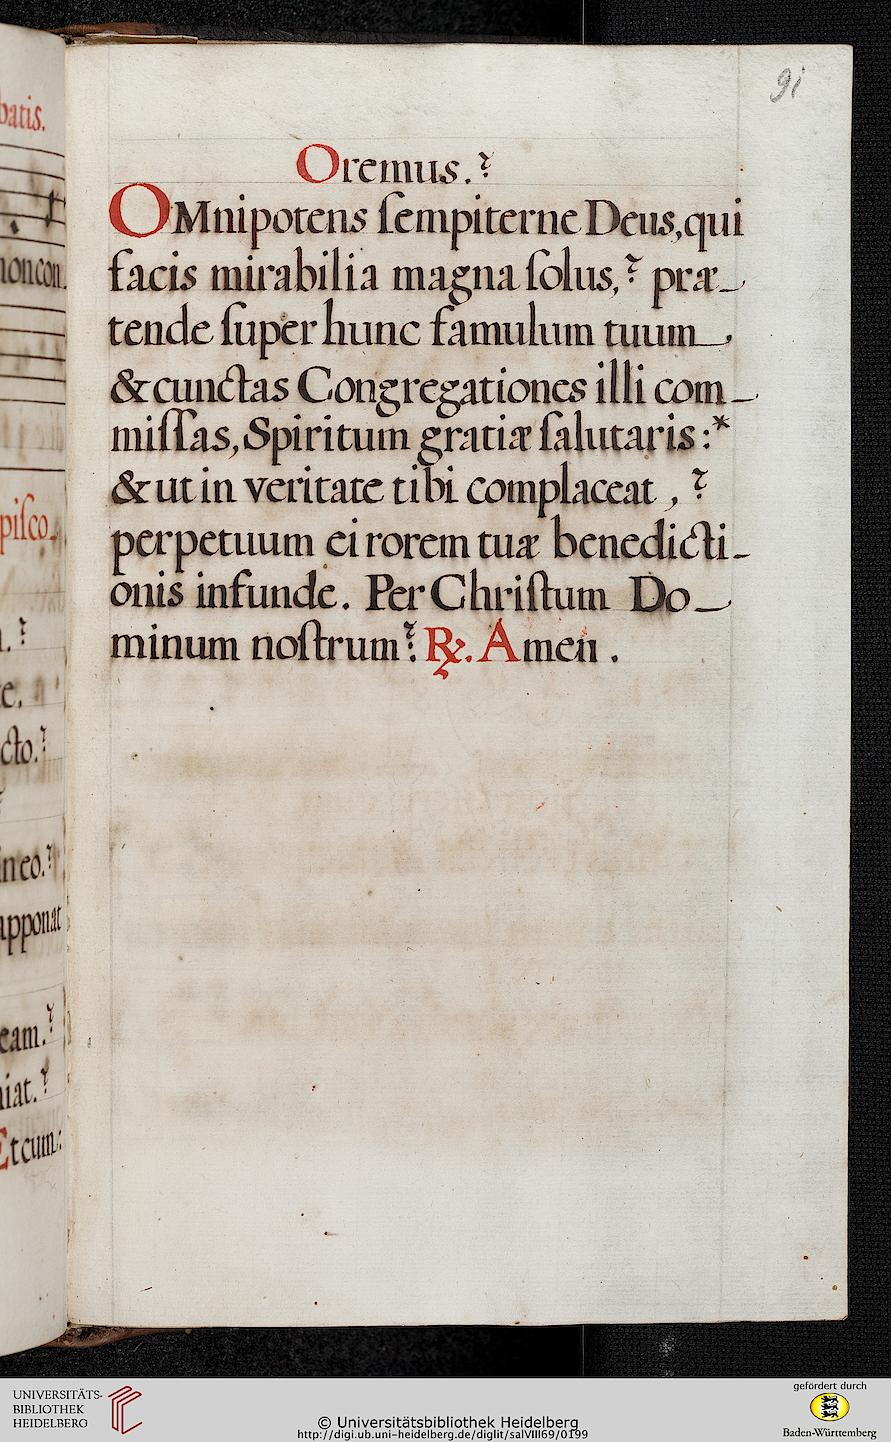 batis.
non con
pisco-
n.
te.
cto.
in eo.
apponat
eam.
niat.
Et cum
91
Oremus.
OMnipotens ſempiterne Deus, qui
facis mirabilia magna ſolus, præ-
tende ſuper hunc famulum tuum
& cunctas Congregationes illi com-
miſſas, Spiritum gratiæ ſalutaris :*
& ut in veritate tibi complaceat ,
perpetuum ei rorem tuæ benedicti-
onis infunde. Per Chriſtum Do-
minum noſtrum. ℞. Amen .
UNIVERSITÄTS-
BIBLIOTHEK
HEIDELBERG
© Universitätsbibliothek Heidelberg
http://digi.ub.uni-heidelberg.de/diglit/salVIII69/0199
gefördert durch
Baden-Württemberg